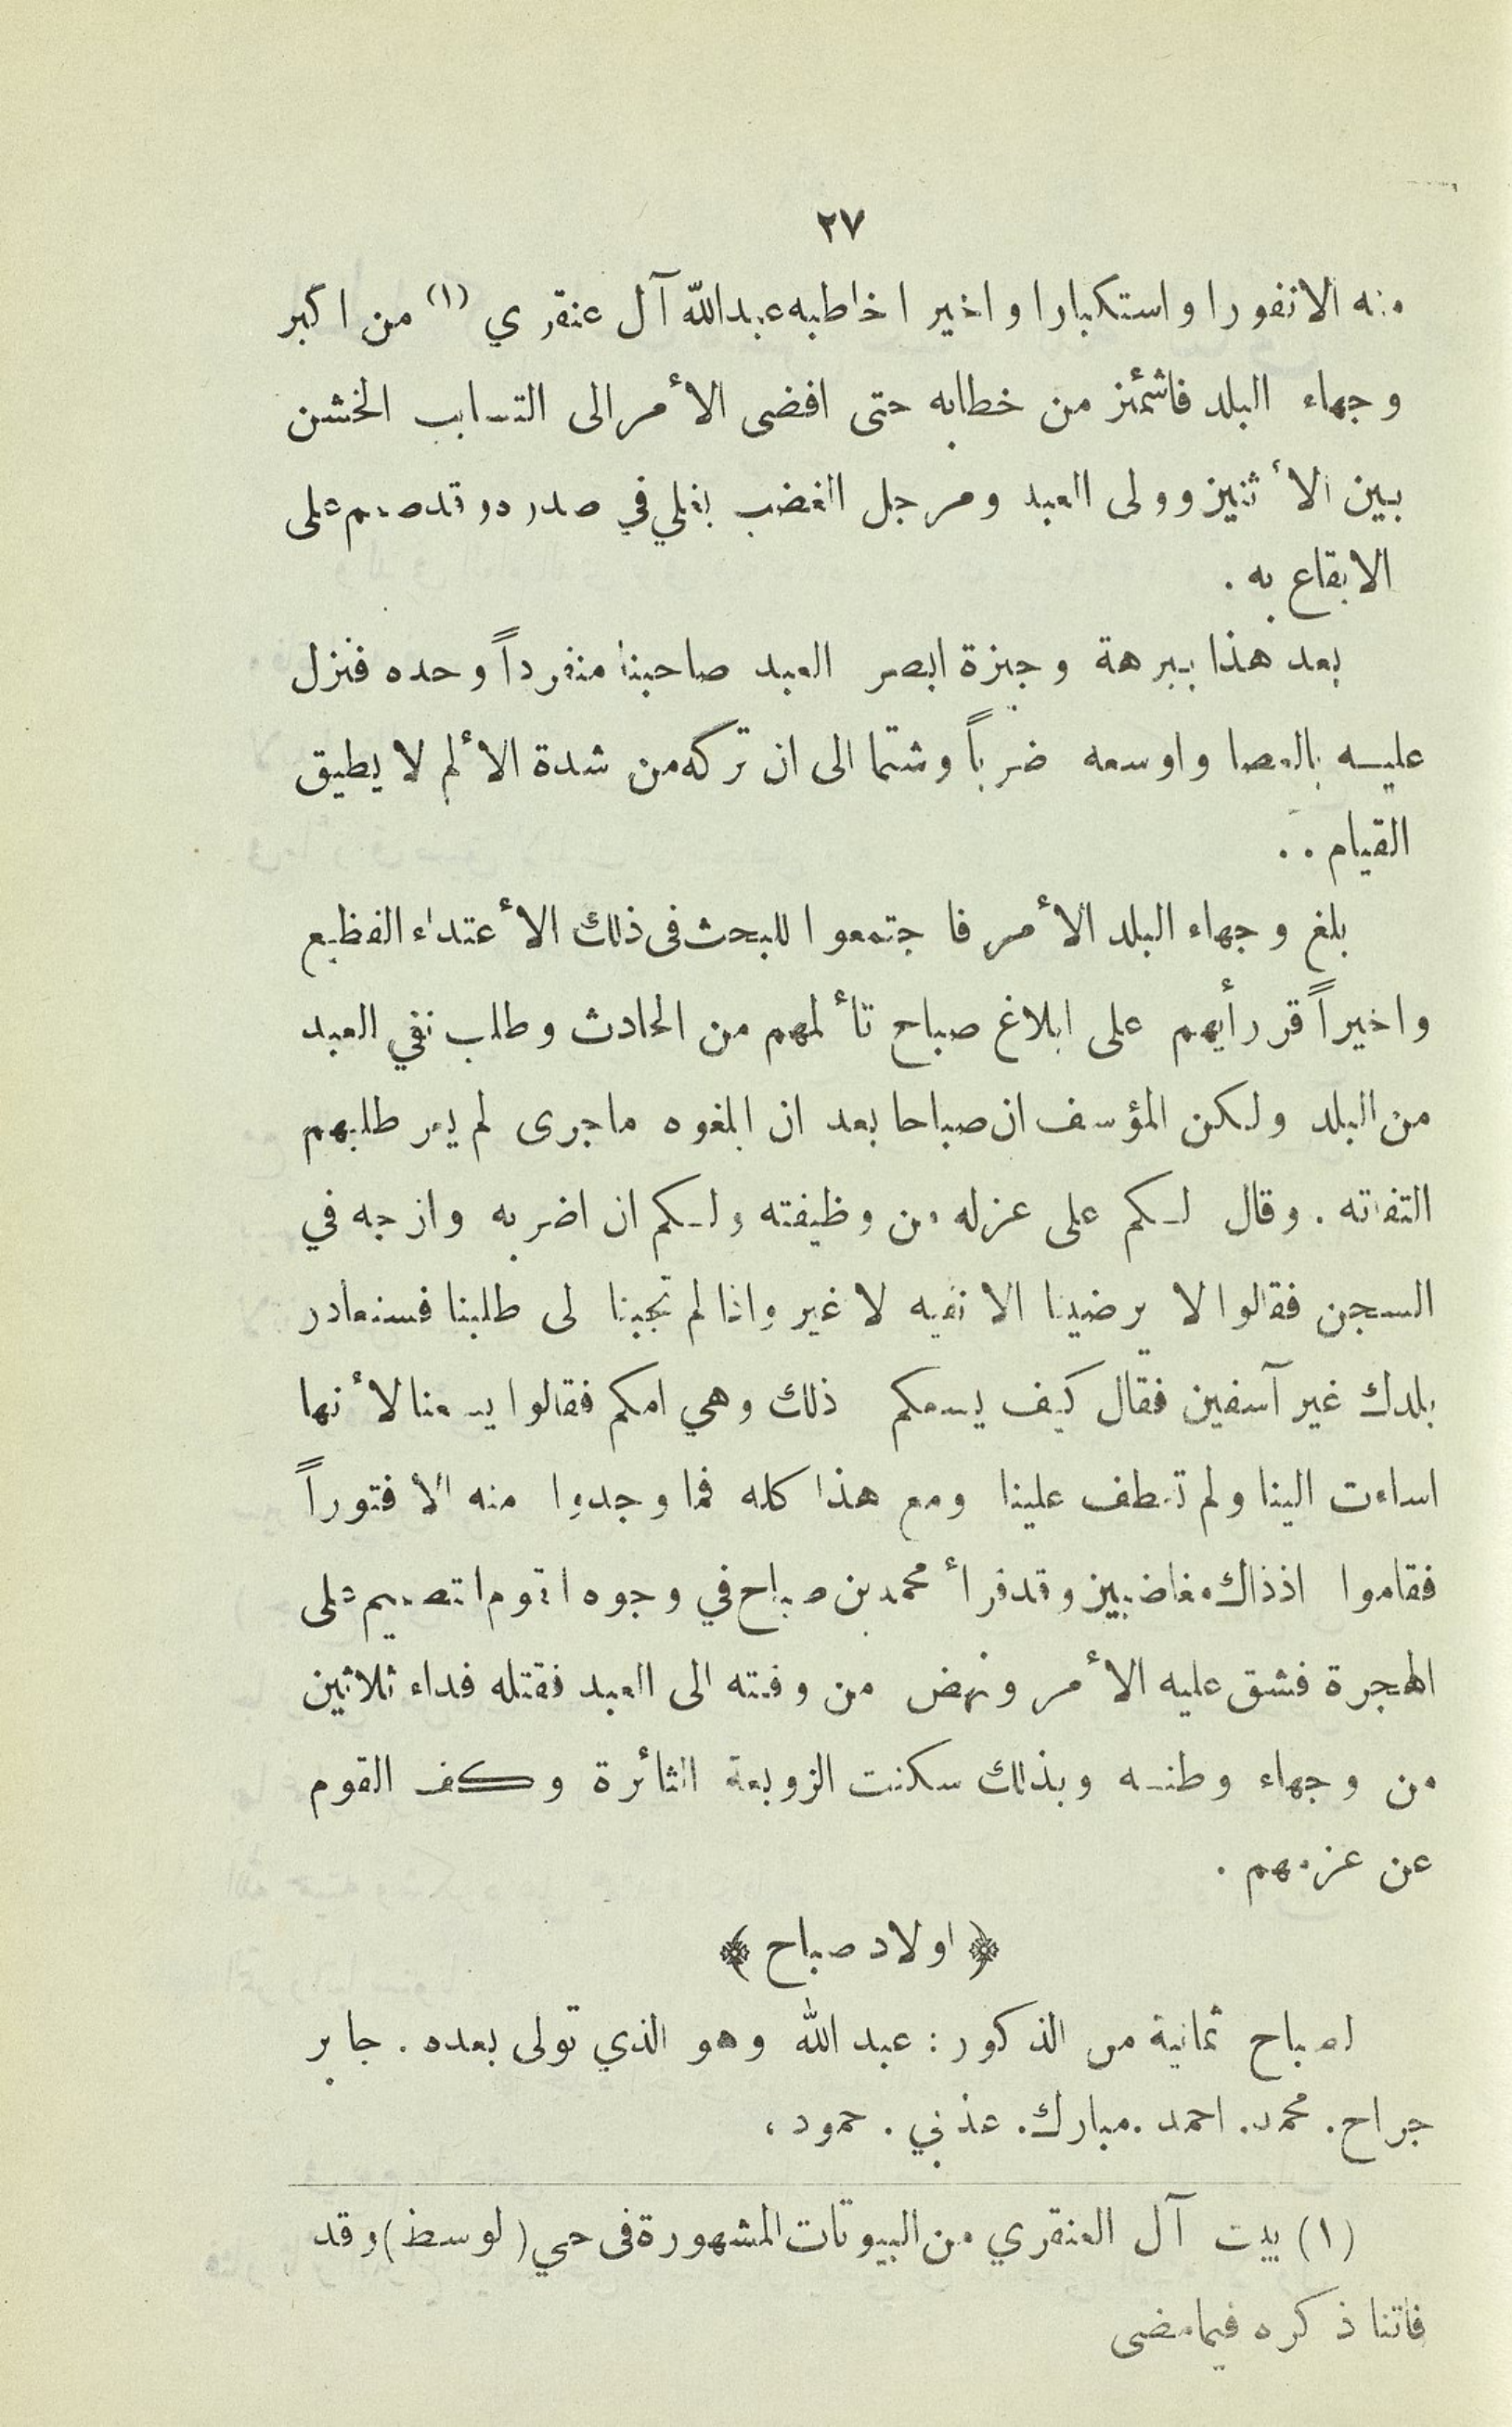 ٢٧
منه الا نفورا واستكبارا واخيرا خاطبه عبدالله آل عنقري (١) من اكبر
وجهاء البلد فاشمئز من خطابه حتى افضى الأمر الى التساب الخشن
بين الأثنين وولى العبد ومرجل الغضب يغلي في صدره وقد صمم على
الايقاع به .
بعد هذا ببرهة وجيزة ابصر العبد صاحبنا منفرداً وحده فنزل
عليه بالعصا واوسعه ضرباً وشتما الى ان تركه من شدة الألم لا يطيق
القيام . .
بلغ وجهاء البلد الأمر فاجتمعوا للبحث فى ذلك الأعتداء الفظيع
واخيراً قر رأيهم على ابلاغ صباح تألمهم من الحادث وطلب نفي العبد
من البلد ولكن المؤسف ان صباحا بعد ان ابلغوه ما جرى لم يعر طلبهم
التفاته . وقال لكم على عزله من وظيفته ولكم ان اضربه وازجه في
السجن فقالوا لا يرضينا الا نفيه لا غير واذا لم تجبنا لى طلبنا فسنغادر
بلدك غير آسفين فقال كيف يسعكم ذلك وهي امكم فقالوا يسعنا لأنها
اساءت الينا ولم تعطف علينا ومع هذا كله فما وجدوا منه الا فتوراً
فقاموا اذذاك مغاضبين وقد فرأ محمد بن صباح في وجوه القوم التصميم على
الهجرة فشق عليه الأمر ونهض من وقته الى العبد فقتله فداء ثلاثين
من وجهاء وطنه وبذلك سكنت الزوبعة الثائرة وكف القوم
عن عزمهم .
﴿ اولاد صباح ﴾
لصباح ثمانية من الذكور : عبد الله وهو الذي تولى بعده . جابر
جراح . محمد . احمد . مبارك . عذبي . حمود ،
(١) بيت آل العنقري من البيوتات المشهورة فى حي (لوسط) وقد
فاتنا ذكره فيما مضى